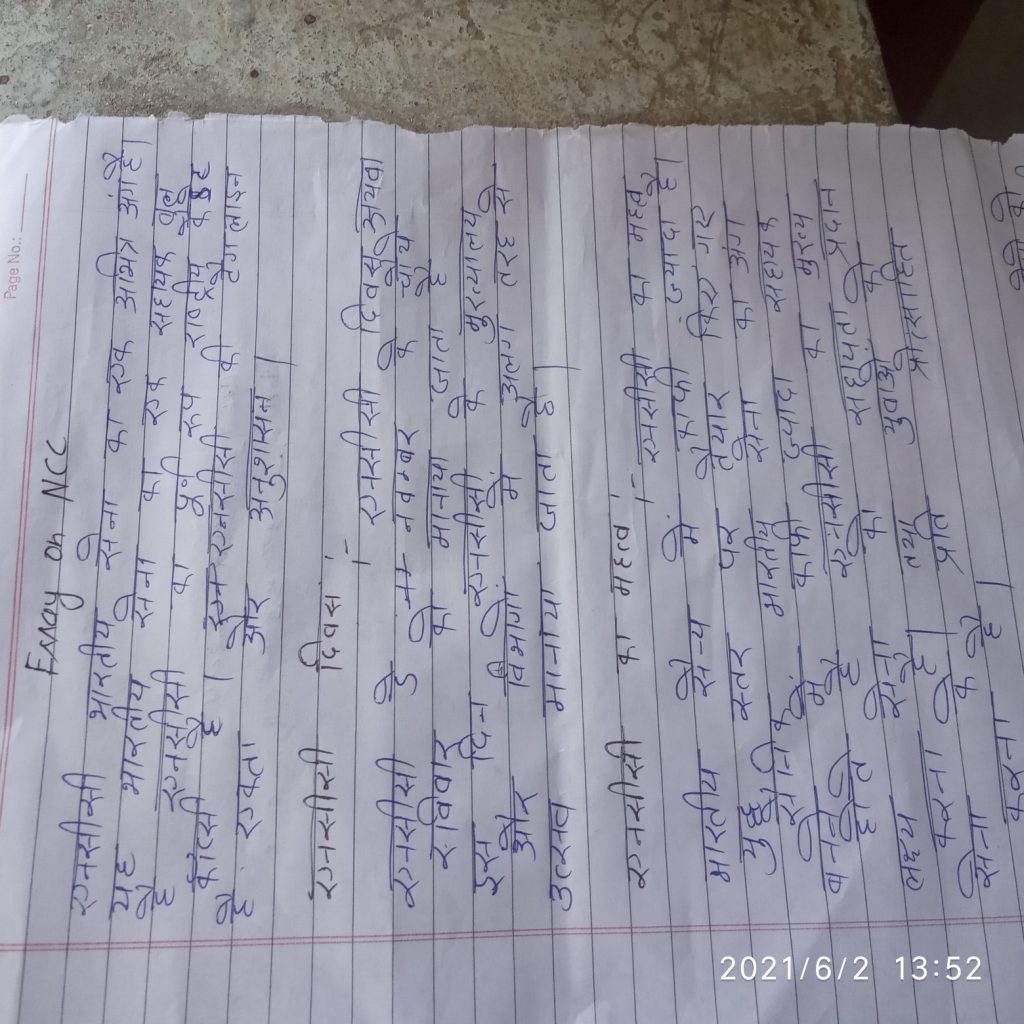 Page No.:
Essay on NCC
एनसीसी भारतीय सेना का एक अभिन्न अंग है।
यह भारतीय सेना का एक सहायक पुल
है एनसीसी का पूर्ण रूप राष्ट्रीय कैडेट
कोरसी है। इस एनसीसी की टैगलाइन
है एकता और अनुशासन।
एनसीसी दिवस :-
एनसीसी दिवस अथवा
एनसीसी डे नवम्बर के चौथे
रविवार को मानाया जाता है
इस दिन एनसीसी के मुख्यालय
और विभागो में अलग तरह से
उत्सव मानाया जाता है।
एनसीसी का महत्व :-
एनसीसी का महत्व
भारतीय सैन्य में काफी ज्यादा है।
युद्ध स्तर पर तैयार किए गए
सैनिक भारतीय सेना का अंग
बनने में काफी ज्यादा सहायक
होते है एनसीसी का मुख्य
लक्ष्य सेना को सहायता प्रदान
करना है। तथा युवाओ को
सेना के प्रति प्रोत्साहित
करना है।
2021/6/2 13:52